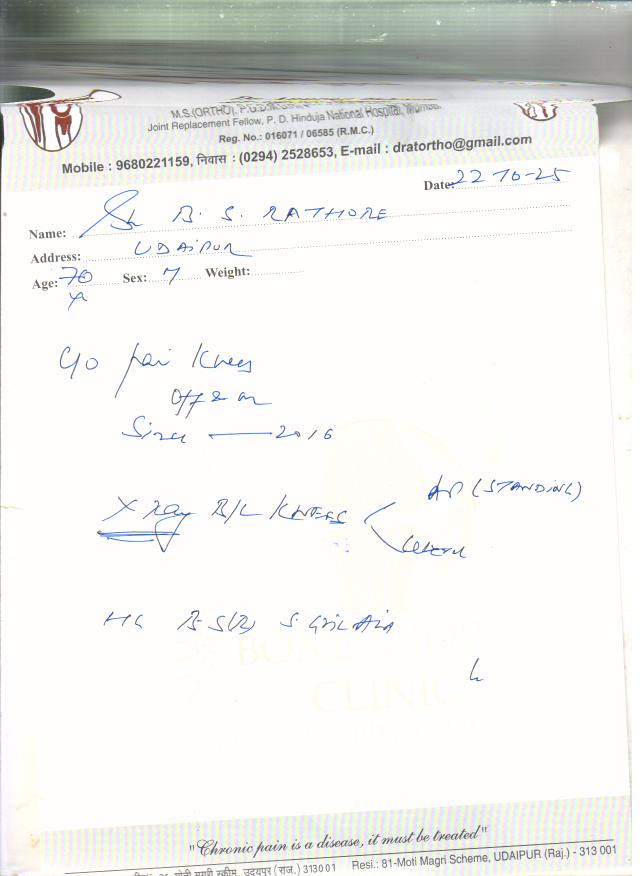 M.S.(ORTHO), P.G.D.
Joint Replacement Fellow, P. D. Hinduja National Hospital, Mumbai
Reg. No.: 016071 / 06585 (R.M.C.)
Mobile : 9680221159, निवास : (0294) 2528653, E-mail : dratortho@gmail.com
Date: 22-10-25
Name: Sh B. S. RATHORE
Address: UDAIPUR
Age: 70 Sex: Weight:
C/o pain Knees
Off & on
Since — 2016
X ray B/L KNEES AP (STANDING)
Lateral
BONE
CLINIC
"Chronic pain is a disease, it must be treated"
उदयपुर (राज.) 313001 Resi.: 81-Moti Magri Scheme, UDAIPUR (Raj.) - 313 001